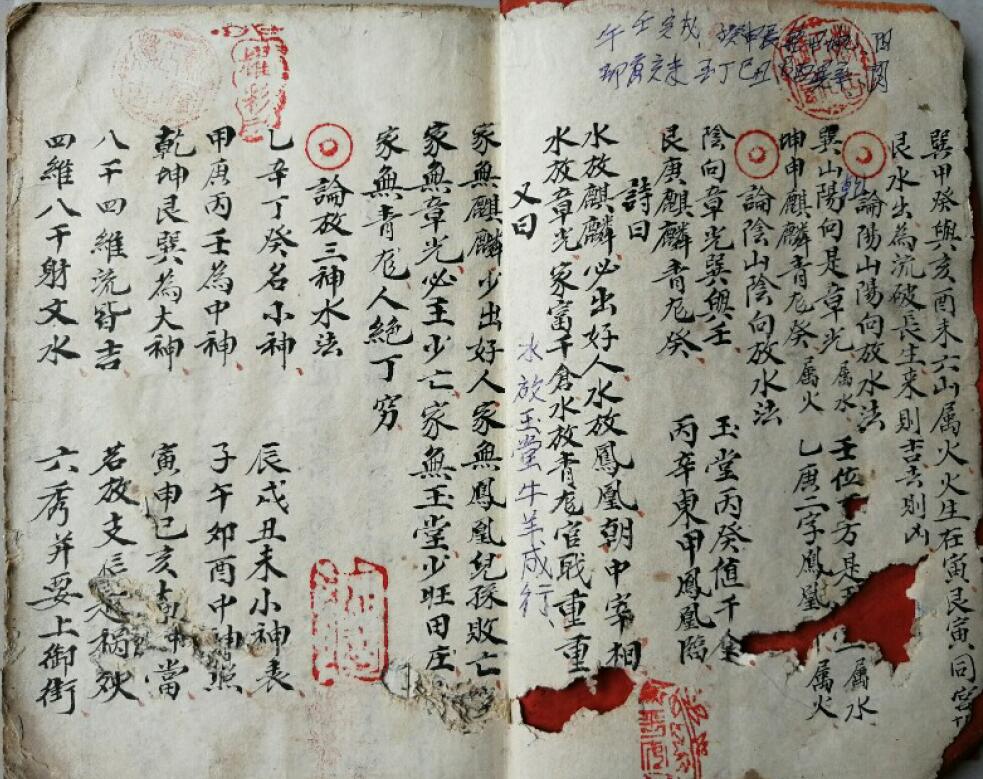 午壬完戌
卯寅亥未 玉丁巳丑
巽甲癸與亥酉未六山属火火生在寅艮寅同宮
艮水出為流破長生来則吉去則凶
論陽山陽向放水法
乾
巽山陽向是章光属水 壬位丁方是玉 属水
坤申麒麟青龙癸属火 乙庚二字鳳凰 属火
論陰山陰向放水法
陰向章光巽與壬 玉堂丙癸值千金
艮庚麒麟青龙癸 丙辛東甲鳳凰臨
詩曰
水放麒麟必出好人水放鳳凰朝中宰相
水放章光家富千倉水放青龙官戢重重
又曰
水放玉堂牛羊成行
家無麒麟少出好人家無鳳凰兒孫敗亡
家無章光必主少亡家無玉堂少旺田庄
家無青龙人絶丁穷
論放三神水法
乙辛丁癸名小神 辰戌丑未小神表
甲庚丙壬為中神 子午卯酉中神照
乾坤艮巽為大神 寅申巳亥 當
八干四維流皆吉 若放支 禍殃
四維八干射文水 六秀并妥上御街
羅彩